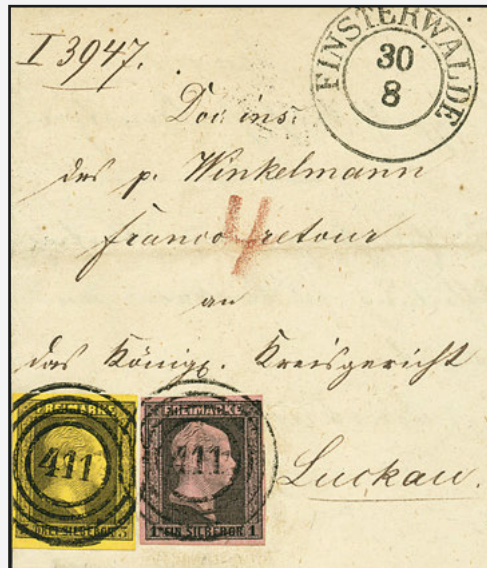 I 3947.
FINSTERWALDE
30
8
Doc. ins:
des p. Winkelmann
franco retour
4
an
das Königl. Kreisgericht
Luckau.
FREIMARKE
411
DREI SILBERGR
3
FREIMARKE
411
1 EIN SILBERGR 1